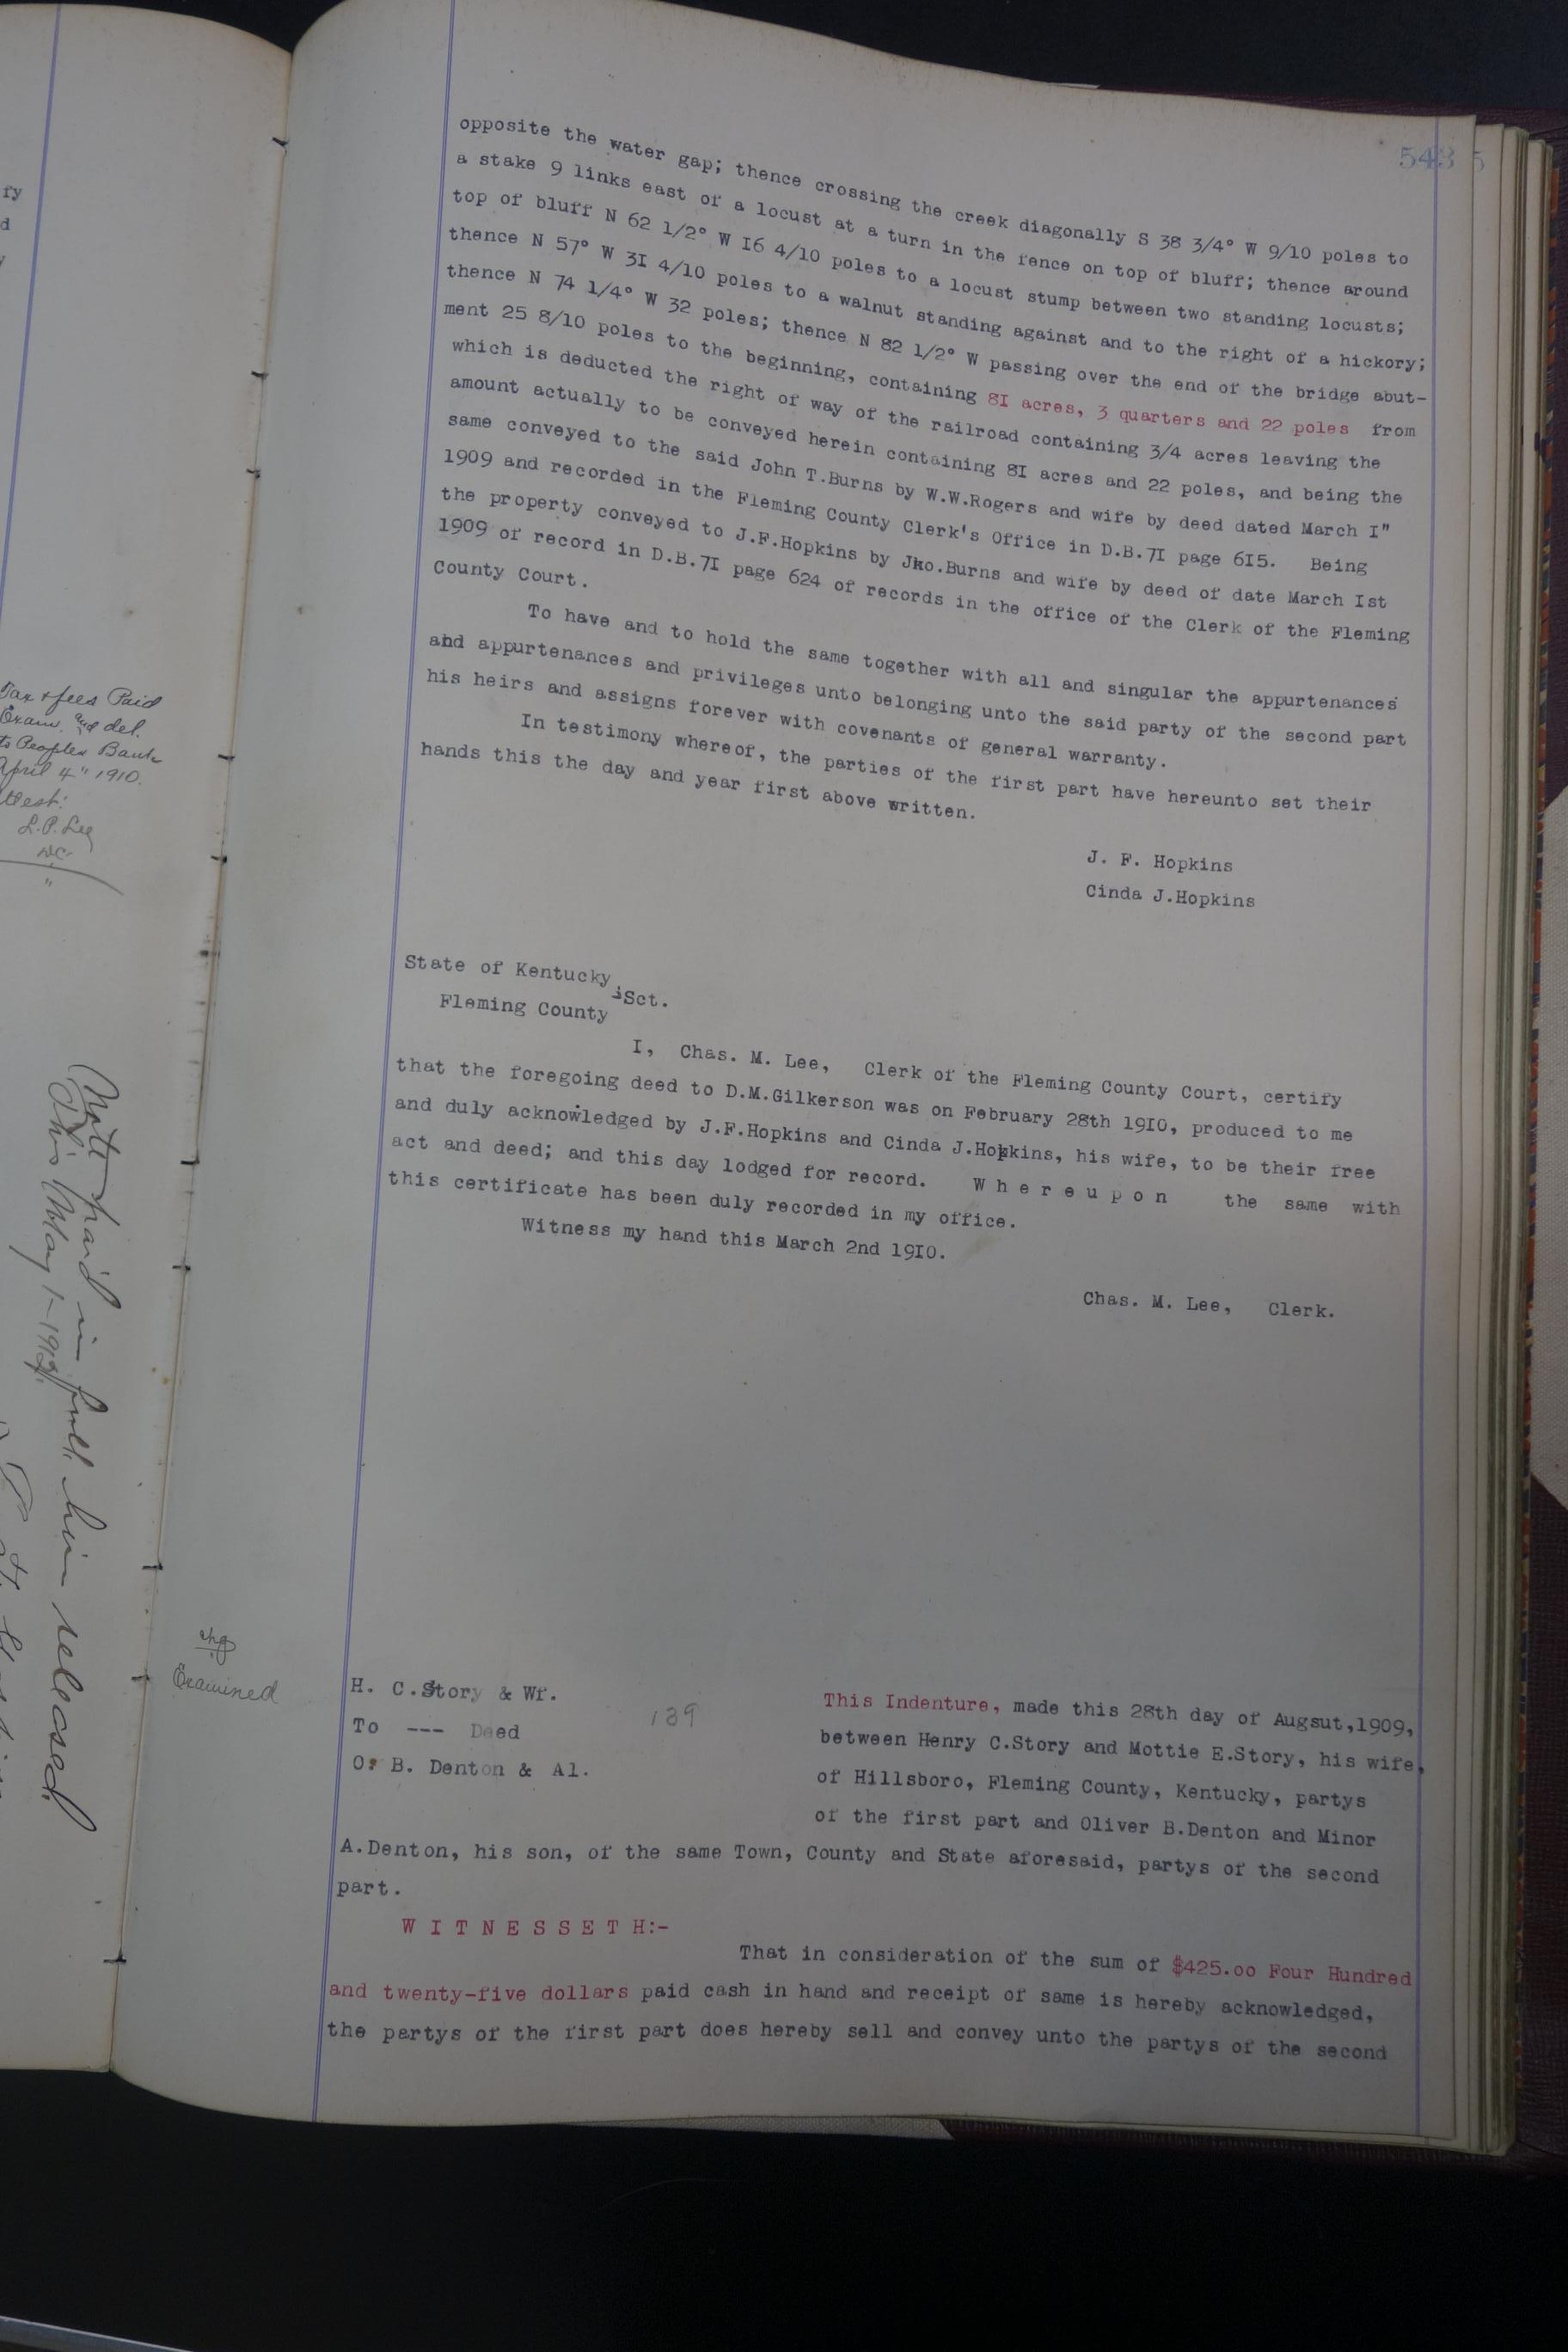 543
opposite the water gap; thence crossing the creek diagonally S 38 3/4° W 9/10 poles to
a stake 9 links east of a locust at a turn in the fence on top of bluff; thence around
top of bluff N 62 1/2° W I6 4/10 poles to a locust stump between two standing locusts;
thence N 57° W 3I 4/10 poles to a walnut standing against and to the right of a hickory;
thence N 74 1/4° W 32 poles; thence N 82 1/2° W passing over the end of the bridge abut-
ment 25 8/10 poles to the beginning, containing 8I acres, 3 quarters and 22 poles from
which is deducted the right of way of the railroad containing 3/4 acres leaving the
amount actually to be conveyed herein containing 8I acres and 22 poles, and being the
same conveyed to the said John T.Burns by W.W.Rogers and wife by deed dated March I"
1909 and recorded in the Fleming County Clerk's Office in D.B.7I page 6I5. Being
the property conveyed to J.F.Hopkins by Jno.Burns and wife by deed of date March Ist
1909 of record in D.B.7I page 624 of records in the office of the Clerk of the Fleming
County Court.
To have and to hold the same together with all and singular the appurtenances
and appurtenances and privileges unto belonging unto the said party of the second part
his heirs and assigns forever with covenants of general warranty.
In testimony whereof, the parties of the first part have hereunto set their
hands this the day and year first above written.
J. F. Hopkins
Cinda J.Hopkins
State of Kentucky
Sct.
Fleming County
I, Chas. M. Lee, Clerk of the Fleming County Court, certify
that the foregoing deed to D.M.Gilkerson was on February 28th 19I0, produced to me
and duly acknowledged by J.F.Hopkins and Cinda J.Hopkins, his wife, to be their free
act and deed; and this day lodged for record. W h e r e u p o n the same with
this certificate has been duly recorded in my office.
Witness my hand this March 2nd 19I0.
Chas. M. Lee, Clerk.
Examined
H. C.Story & Wf.
To --- Deed
O. B. Denton & Al.
139
This Indenture, made this 28th day of Augsut,1909,
between Henry C.Story and Mottie E.Story, his wife,
of Hillsboro, Fleming County, Kentucky, partys
of the first part and Oliver B.Denton and Minor
A.Denton, his son, of the same Town, County and State aforesaid, partys of the second
part.
W I T N E S S E T H:-
That in consideration of the sum of $425.oo Four Hundred
and twenty-five dollars paid cash in hand and receipt of same is hereby acknowledged,
the partys of the first part does hereby sell and convey unto the partys of the second
Tax & fees Paid
Exam. and del.
to Peoples Bank
April 4" 1910.
Attest:
L.P. Lee
DC
Note paid in full lien released
This May 1-1912